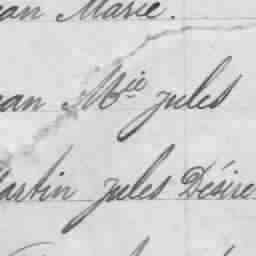 ean Marie.
ean M^ie Jules
Martin Jules Désiré